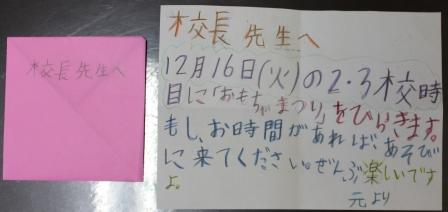 校長先生へ
校長先生へ
12月16日(火)の2・3校時
目に「おもちゃまつり」をひらきます。
もし、お時間があれば、あそび
に来てください。ぜんぶ楽しいです
よ。
元より